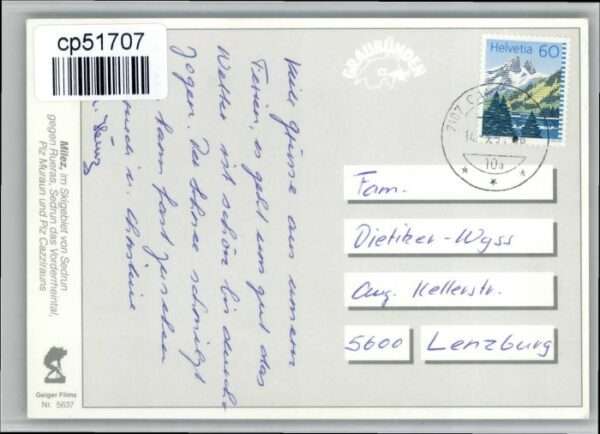 cp51707
GRAUBÜNDEN
Helvetia 60
7187 CA
10a
Milez, im Skigebiet von Sedrun
gegen Rueras, Sedrun das Vorderrheintal,
Piz Muraun und Piz Cazzirauns
Geiger Films
Nr. 5637
Viele Grüsse aus unsern
Ferien, es geht uns gut das
Wetter ist schön bis durch-
zogen. Der Schnee schmilzt
kann fast zusehen
u. Christine
Fam.
Dietiker-Wyss
Aug. Kellerstr.
5600 Lenzburg